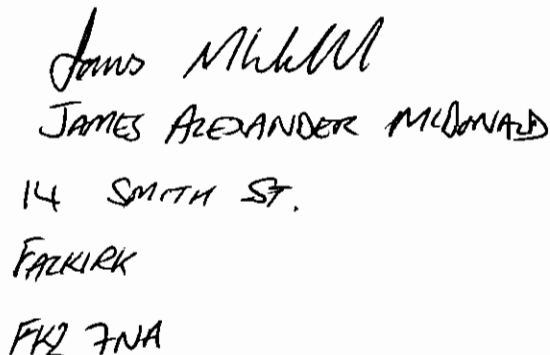 James
JAMES ALEXANDER MCDONALD
14 SMITH ST.
FALKIRK
FK2 7NA